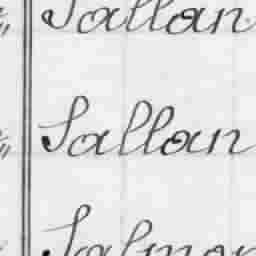 Sallan
Sallan
Salmon